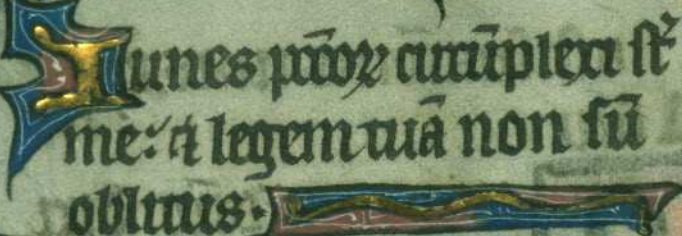 Funes pccōꝝ circūplexi st̄
me: et legem tuā non sū
oblitus.